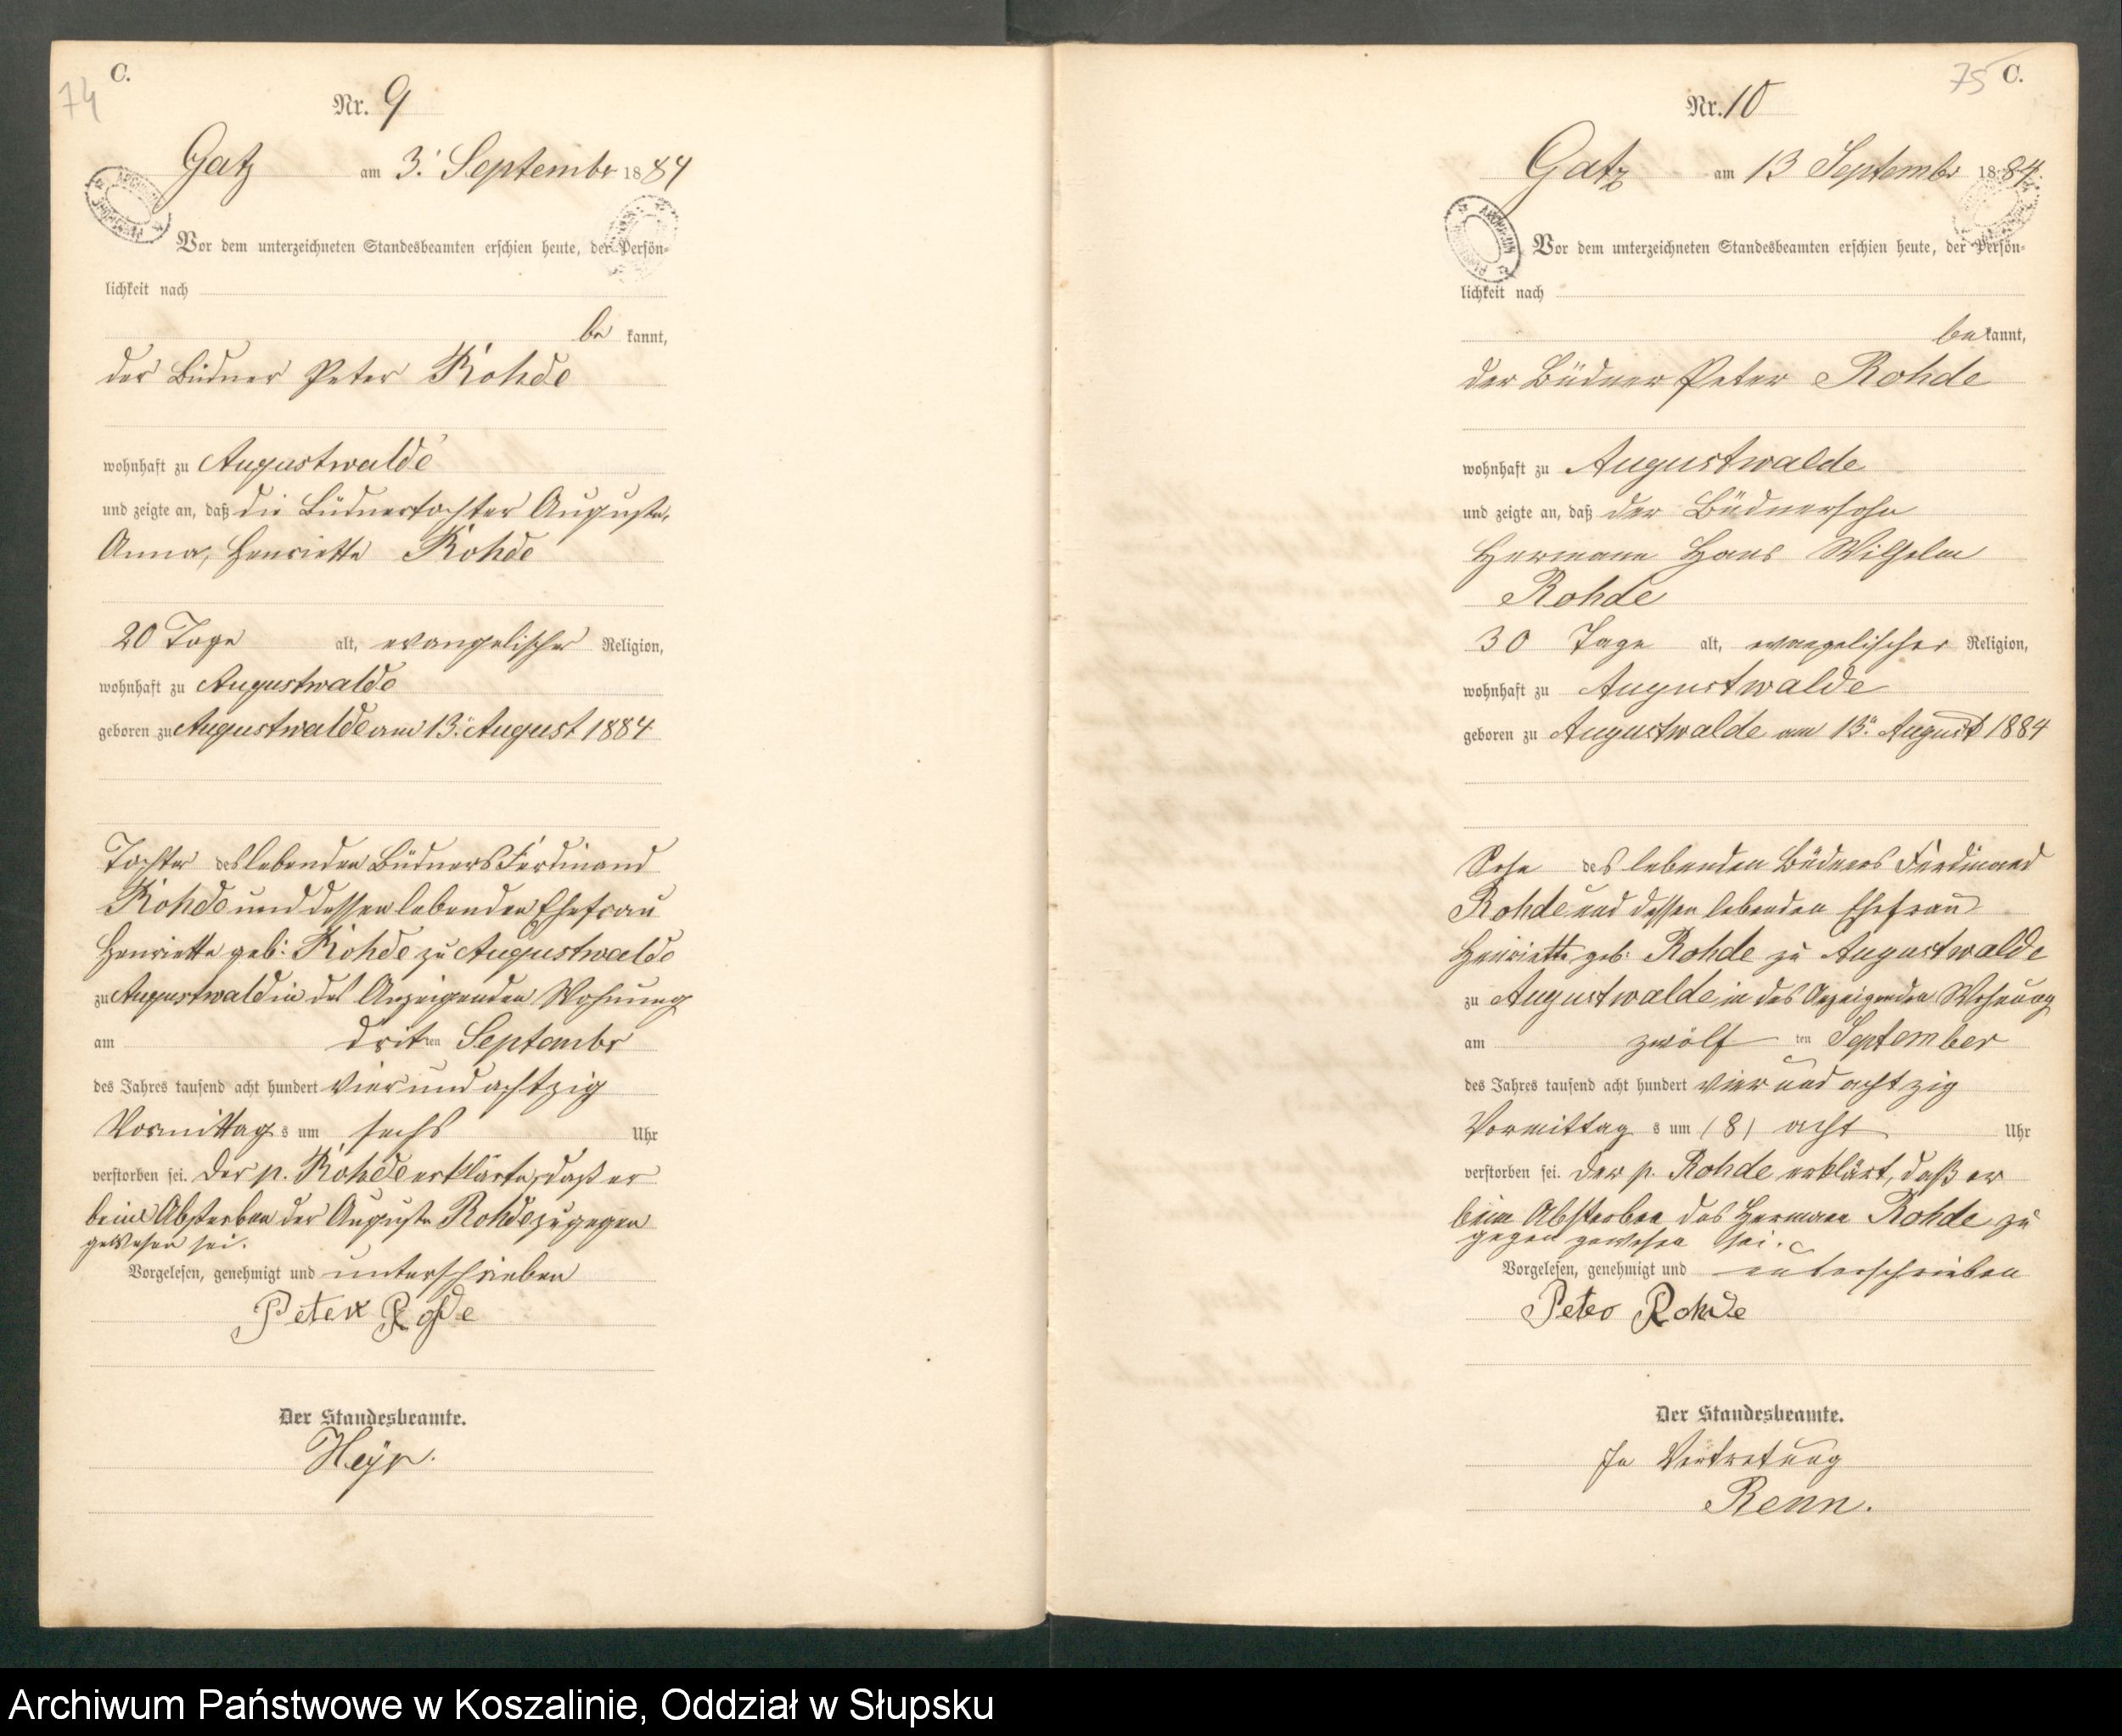 74
C.
Nr. 9
Gatz am 3. Septembr 1884
Vor dem unterzeichneten Standesbeamten erschien heute, der Persön=
lichkeit nach
be kannt,
der Büdner Peter Rohde
wohnhaft zu Augustwalde
und zeigte an, daß die Büdnertochter Auguste,
Anna, Henriette Rohde
20 Tage alt, evangelischer Religion,
wohnhaft zu Augustwalde
geboren zu Augustwalde am 13. August 1884
Tochter des lebenden Büdners Ferdinand
Rohde und dessen lebenden Ehefrau
Henriette geb: Rohde zu Augustwalde
zu Augustwald in des Anzeigenden Wohnung
am dritten Septembr
des Jahres tausend acht hundert vier und achtzig
Vormittags um sechs Uhr
verstorben sei. Der p. Rohde erklärte, daß er
beim Absterben der Auguste Rohde zugegen
gewesen sei.
Vorgelesen, genehmigt und unterschrieben
Peter Rohde
Der Standesbeamte.
Heyn.
75 C.
Nr. 10
Gatz am 13 Septembr 1884.
Vor dem unterzeichneten Standesbeamten erschien heute, der Persön=
lichkeit nach
be kannt,
der Büdner Peter Rohde
wohnhaft zu Augustwalde
und zeigte an, daß der Büdnersohn
Hermann Hans Wilhelm
Rohde
30 Tage alt, evangelischer Religion,
wohnhaft zu Augustwalde
geboren zu Augustwalde am 13. August 1884
Sohn des lebenden Büdners Ferdinand
Rohde und dessen lebenden Ehefrau
Henriette geb: Rohde zu Augustwalde
zu Augustwalde in des Anzeigenden Wohnung
am zwölf ten September
des Jahres tausend acht hundert vier und achtzig
Vormittag s um (8) acht Uhr
verstorben sei. Der p. Rohde erklärt, daß er
beim Absterben des Hermann Rohde zu
gegen gewesen sei.
Vorgelesen, genehmigt und unterschrieben
Peter Rohde
Der Standesbeamte.
In Vertretung
Renn.
Archiwum Państwowe w Koszalinie, Oddział w Słupsku